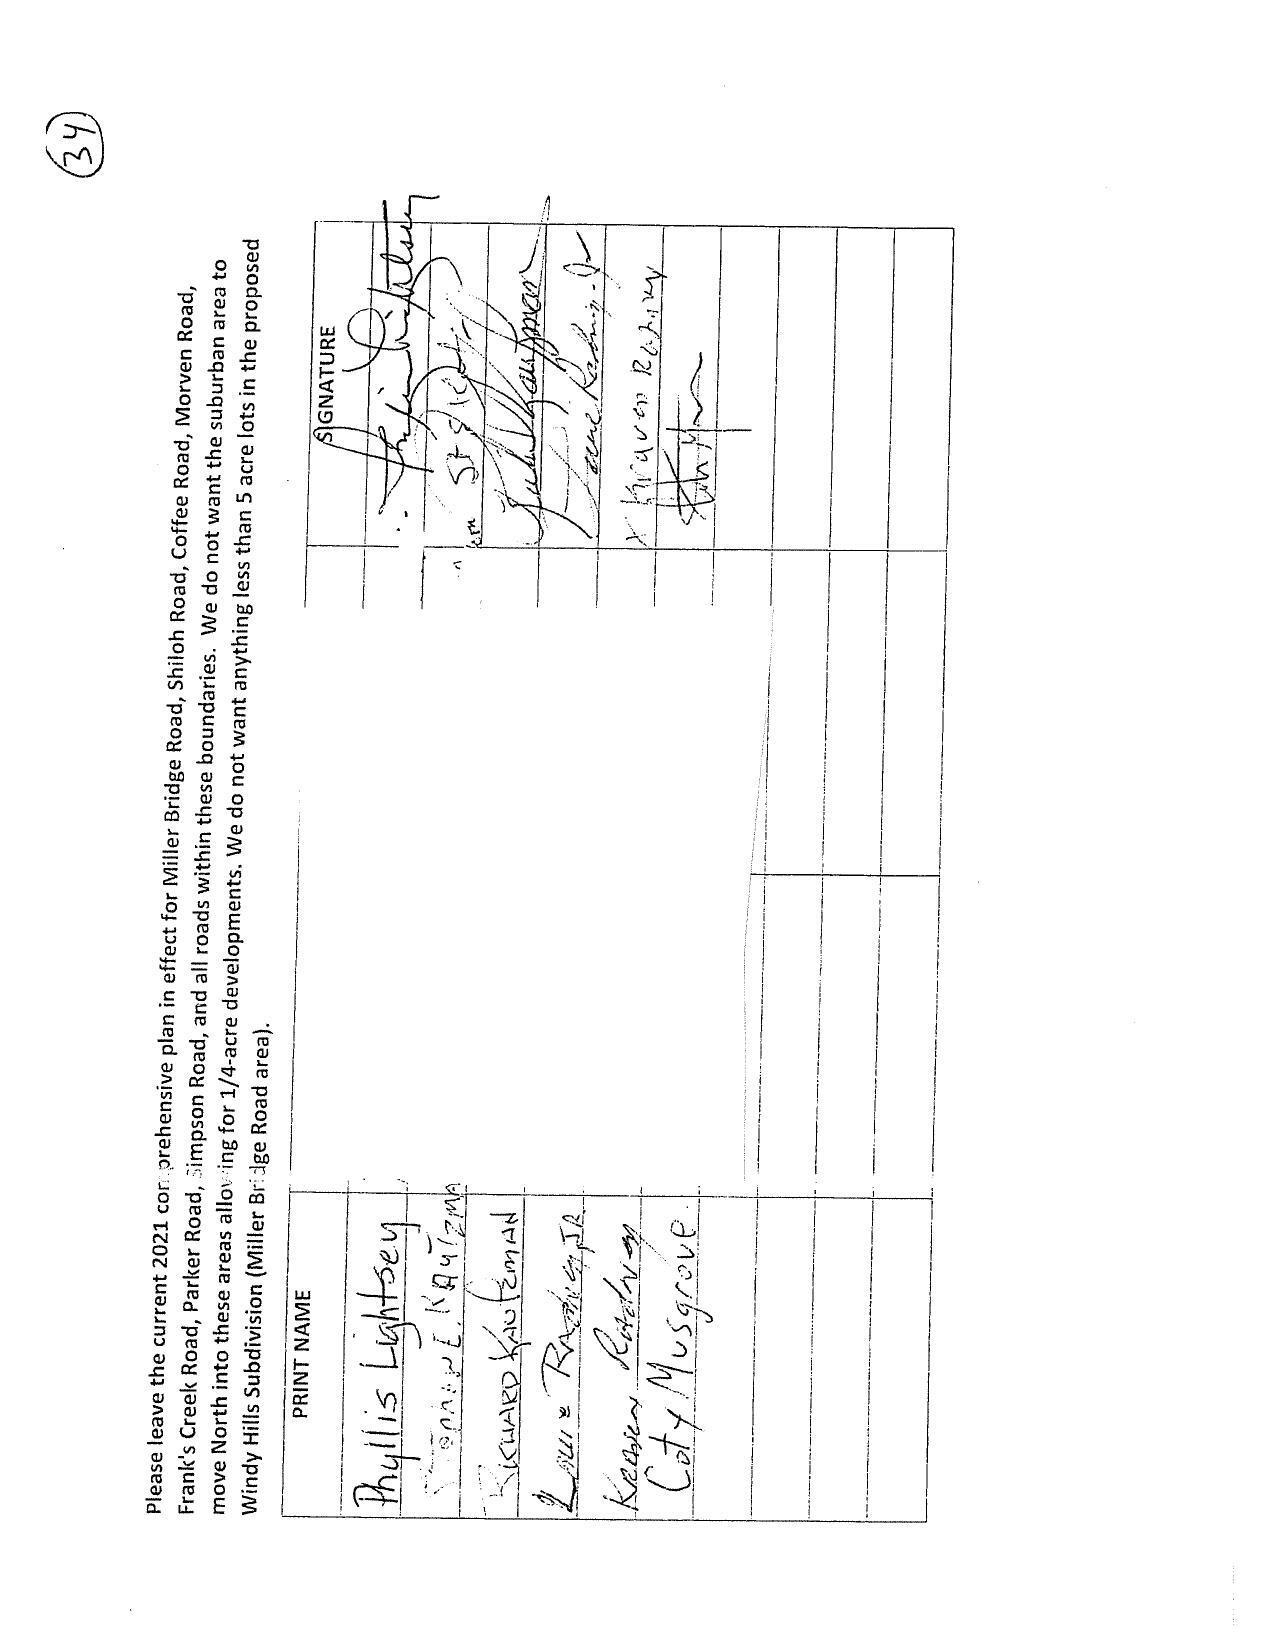 34
Please leave the current 2021 comprehensive plan in effect for Miller Bridge Road, Shiloh Road, Coffee Road, Morven Road,
Frank's Creek Road, Parker Road, Simpson Road, and all roads within these boundaries. We do not want the suburban area to
move North into these areas allowing for 1/4-acre developments. We do not want anything less than 5 acre lots in the proposed
Windy Hills Subdivision (Miller Bridge Road area).
PRINT NAME SIGNATURE
Phyllis Lightsey
E. KAUTZMA
RICHARD KAUTZMAN
JR
Coty Musgrove